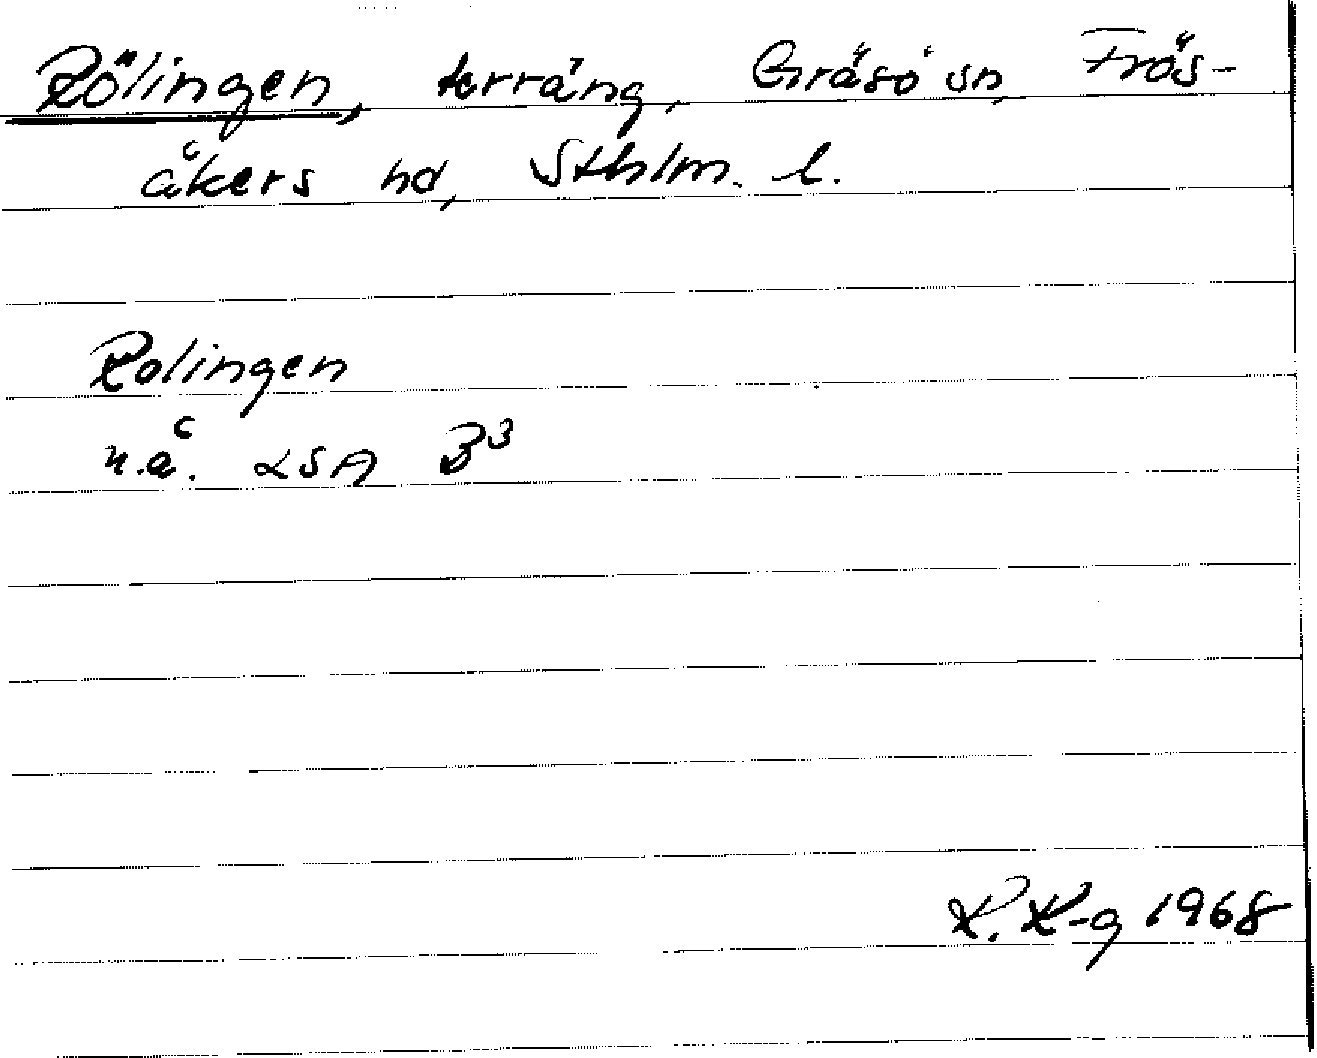 Rölingen, terräng, Gräsö sn, Frös-
åkers hd, Sthlm. l.
Rolingen
n.å. LSA B3
K. K-g 1968